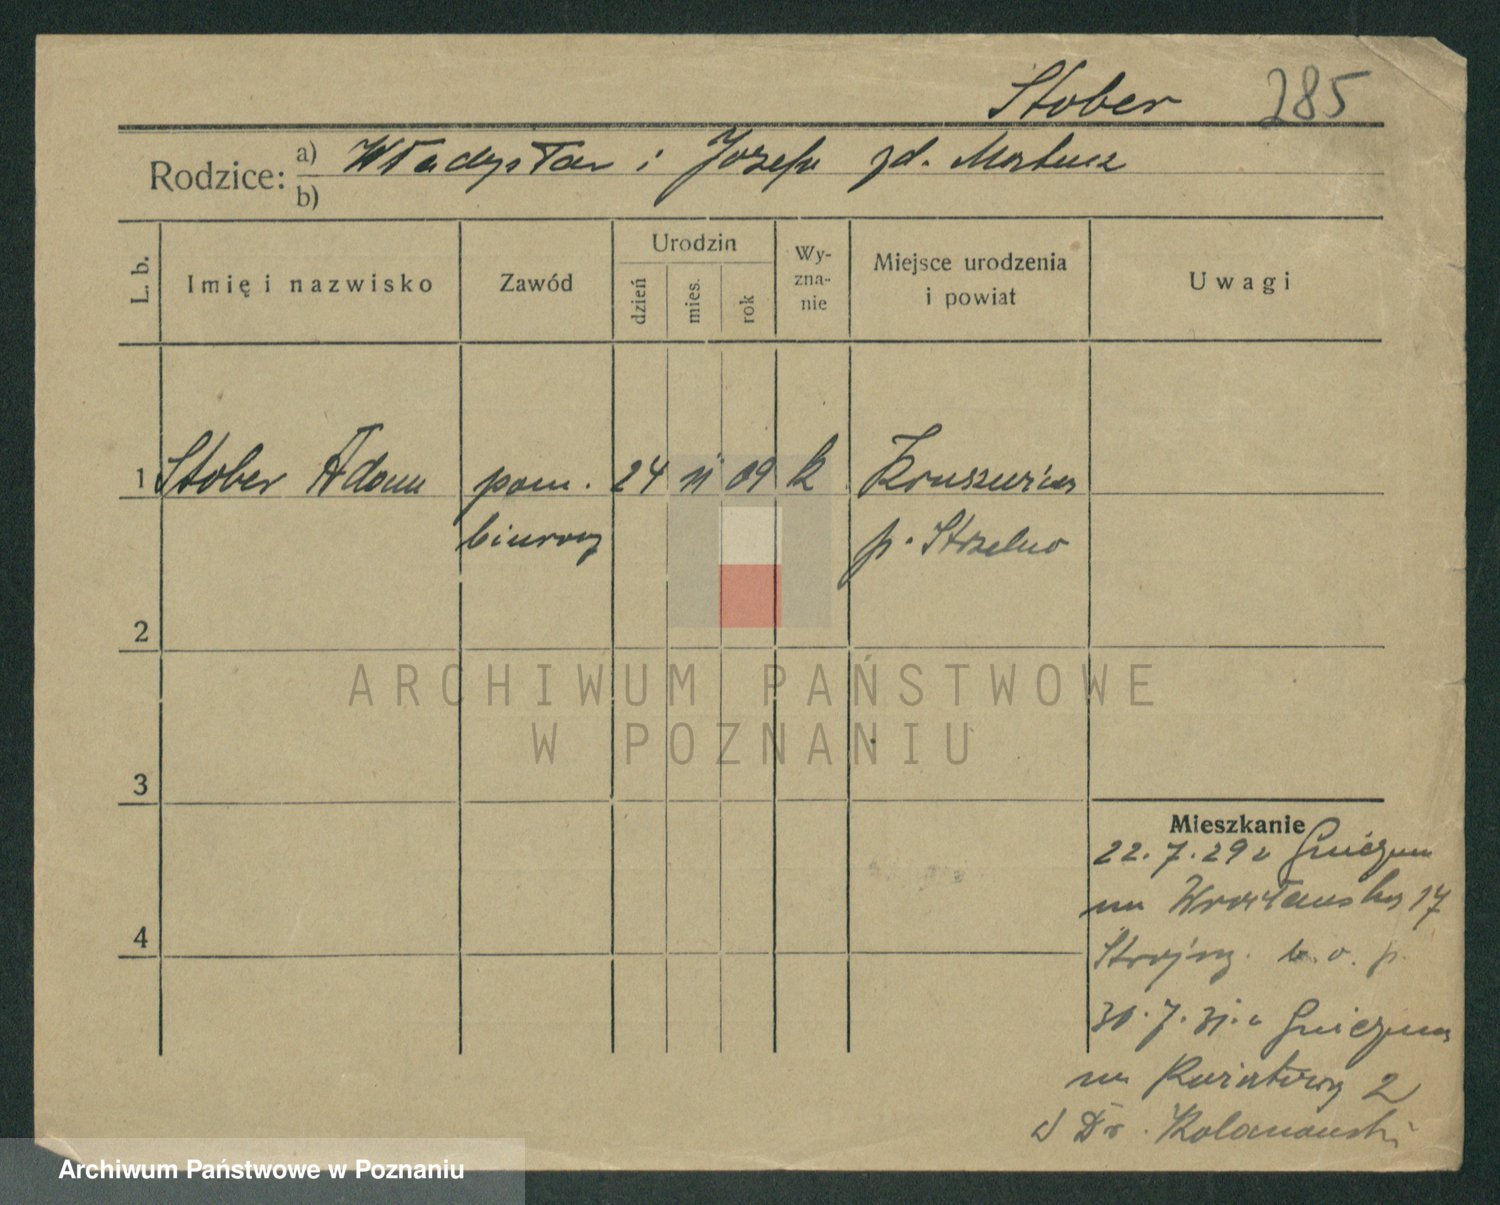 Stober 285
Rodzice: a) Władysław i Józefa zd. Matusz
b)
L. b.
Imię i nazwisko
Zawód
Urodzin
dzień
mies.
rok
Wy-
zna-
nie
Miejsce urodzenia
i powiat
Uwagi
1 Stober Adam pom. 24 11 09 k Kruszwica
biurowy p. Strzelno
2
ARCHIWUM PAŃSTWOWE
W POZNANIU
3
Mieszkanie
22.7.29 z Gniezna
na Wrocławską 17
b. o. p.
30.7.31. z Gniezna
na Kwiatową 2
Dr. Kolanowski
4
Archiwum Państwowe w Poznaniu